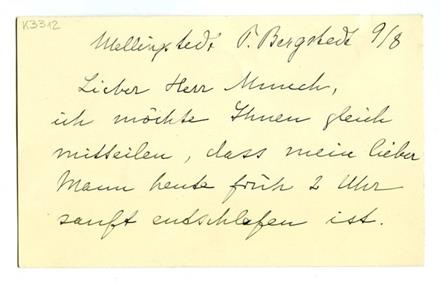 K3312
Mellingstedt P. Bergstedt 9/8
Lieber Herr Munch,
ich möchte Ihnen gleich
mitteilen, dass mein lieber
Mann heute früh 2 Uhr
sanft entschlafen ist.